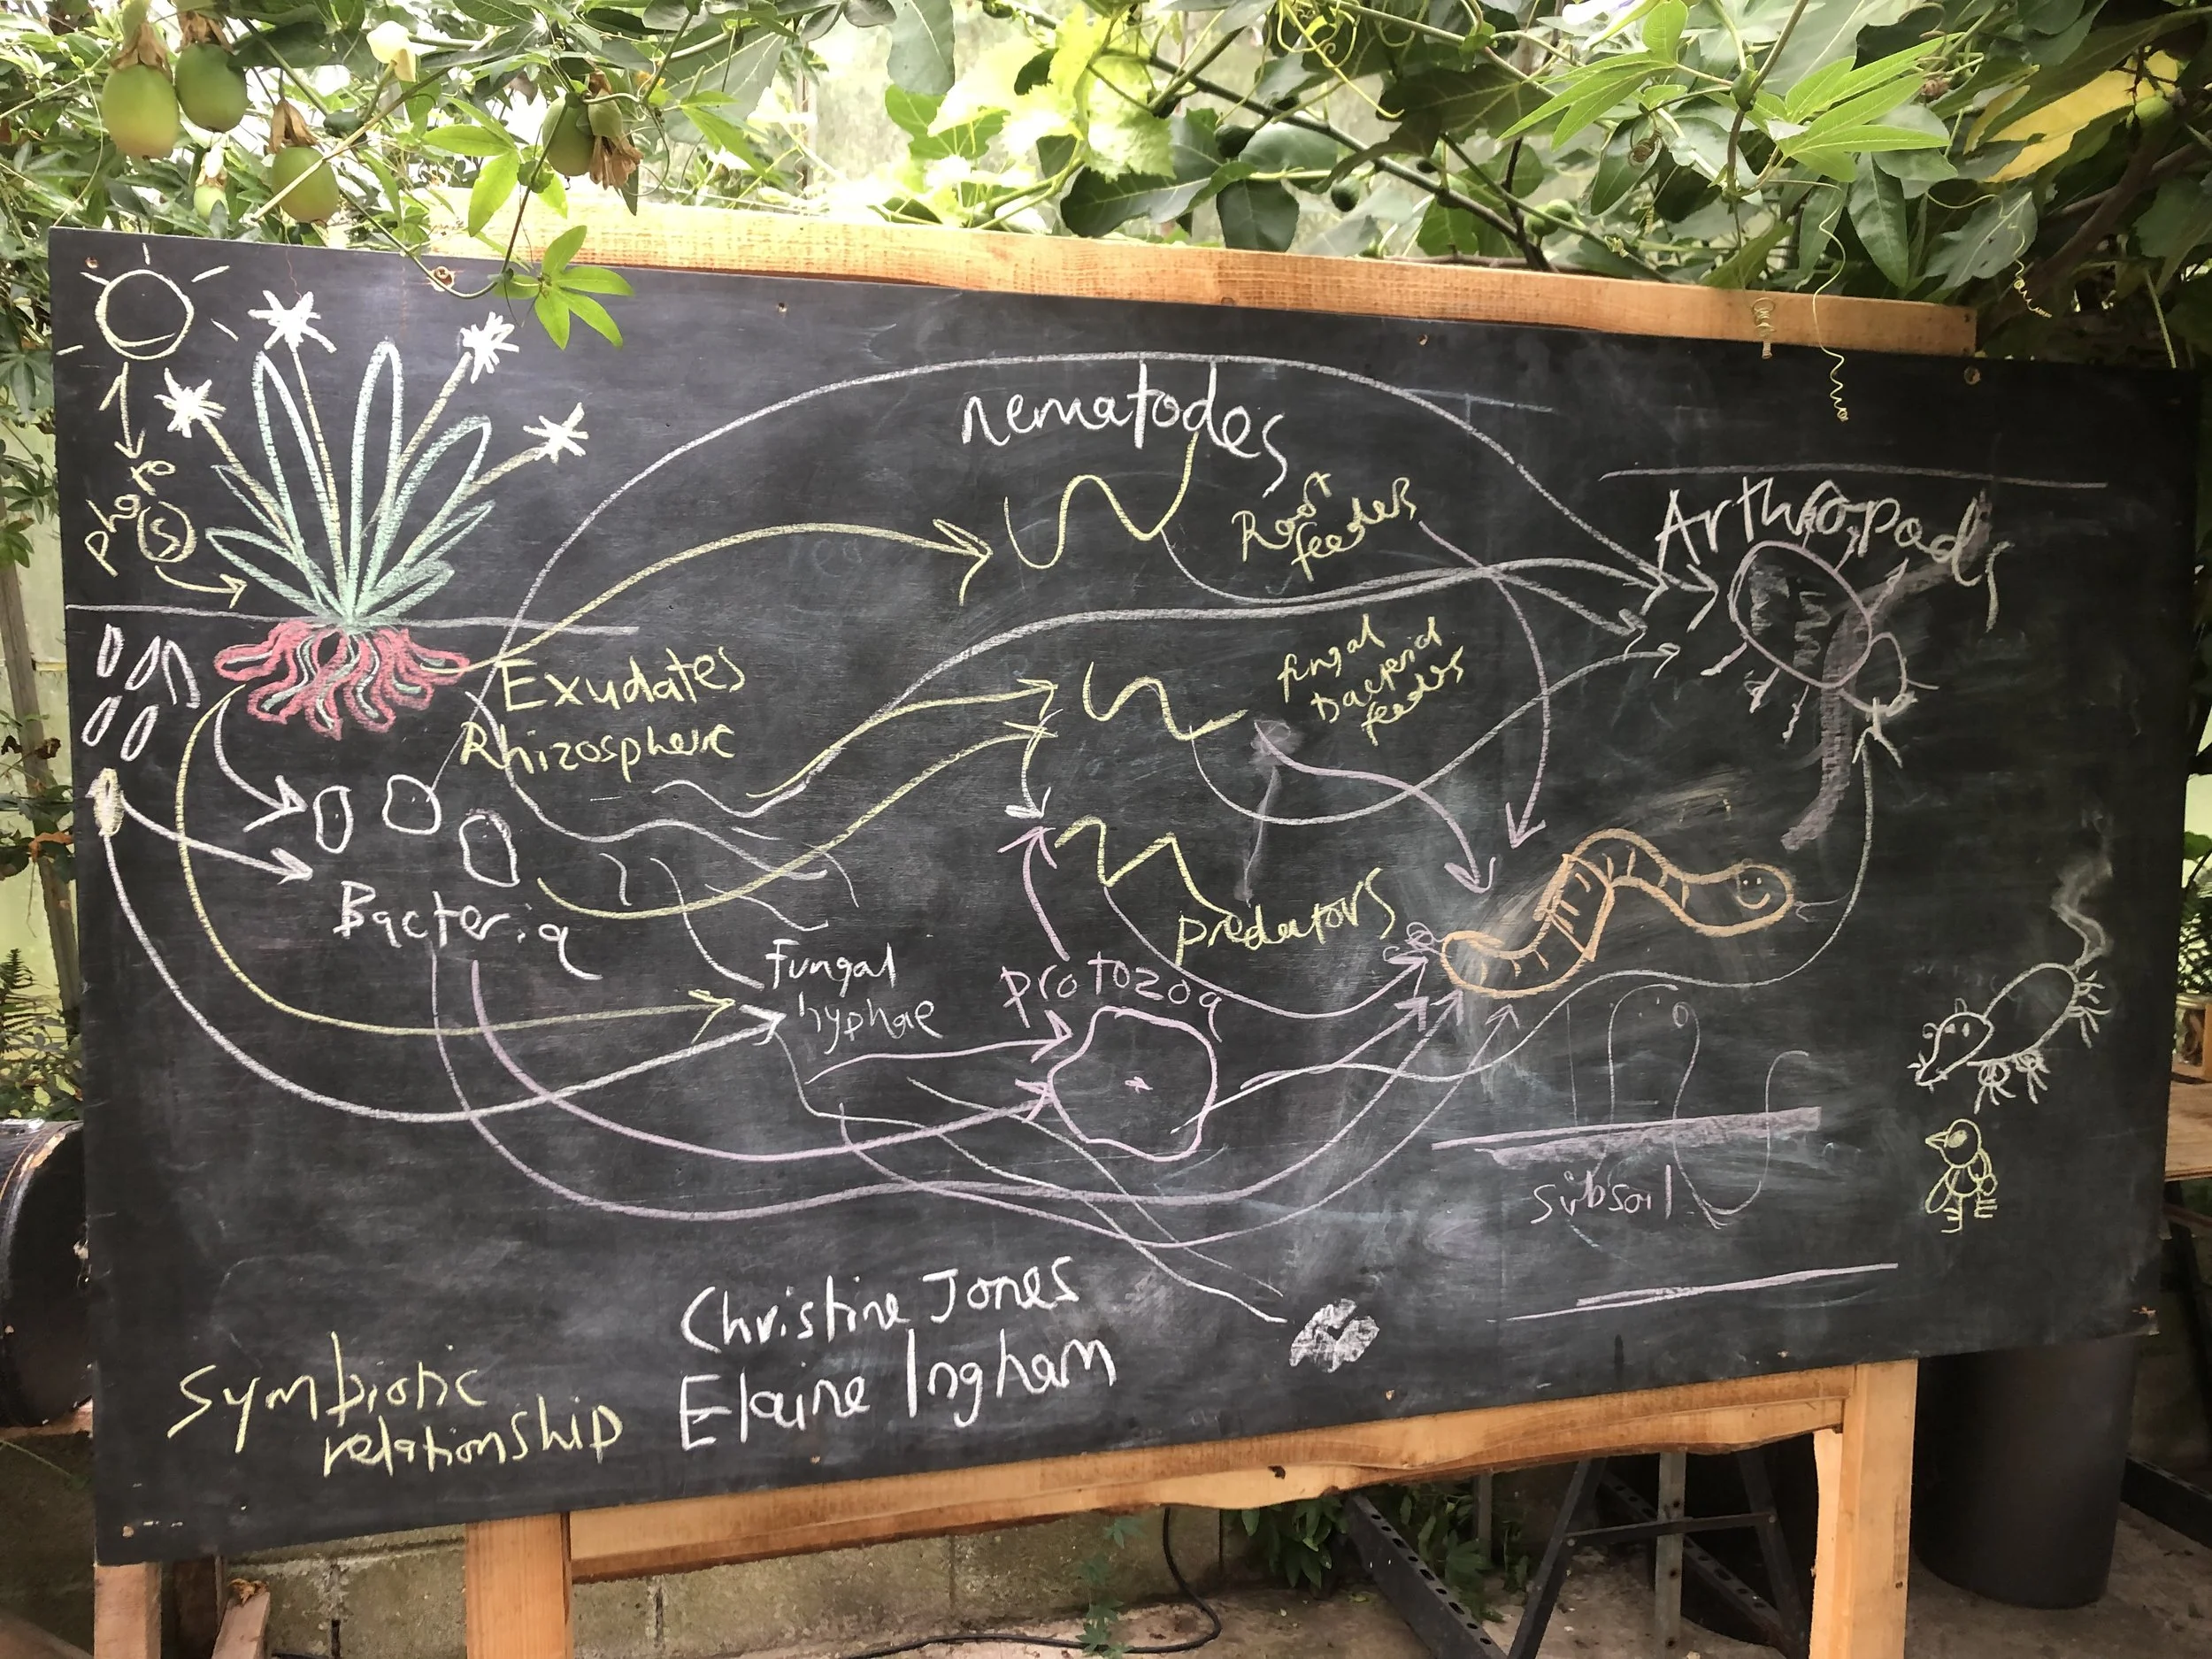 photo
(S)
nematodes
Root
feeders
Arthropods
Exudates
Rhizosphere
fungal
bacterial
feeders
Bacteria
predators
Fungal
hyphae
protozoa
subsoil
Christine Jones
Elaine Ingham
Symbiotic
relationship